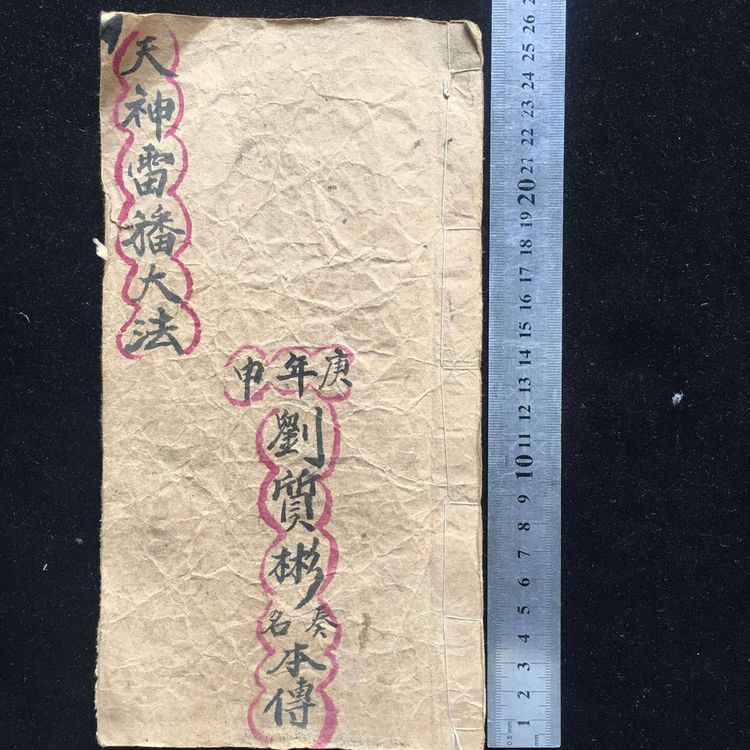 天神雷播大法
庚年申
劉質彬
奏名
本傳
26
25
24
23
22
21
20
19
18
17
16
15
14
13
12
11
10
9
8
7
6
5
4
3
2
1
0.5 mm